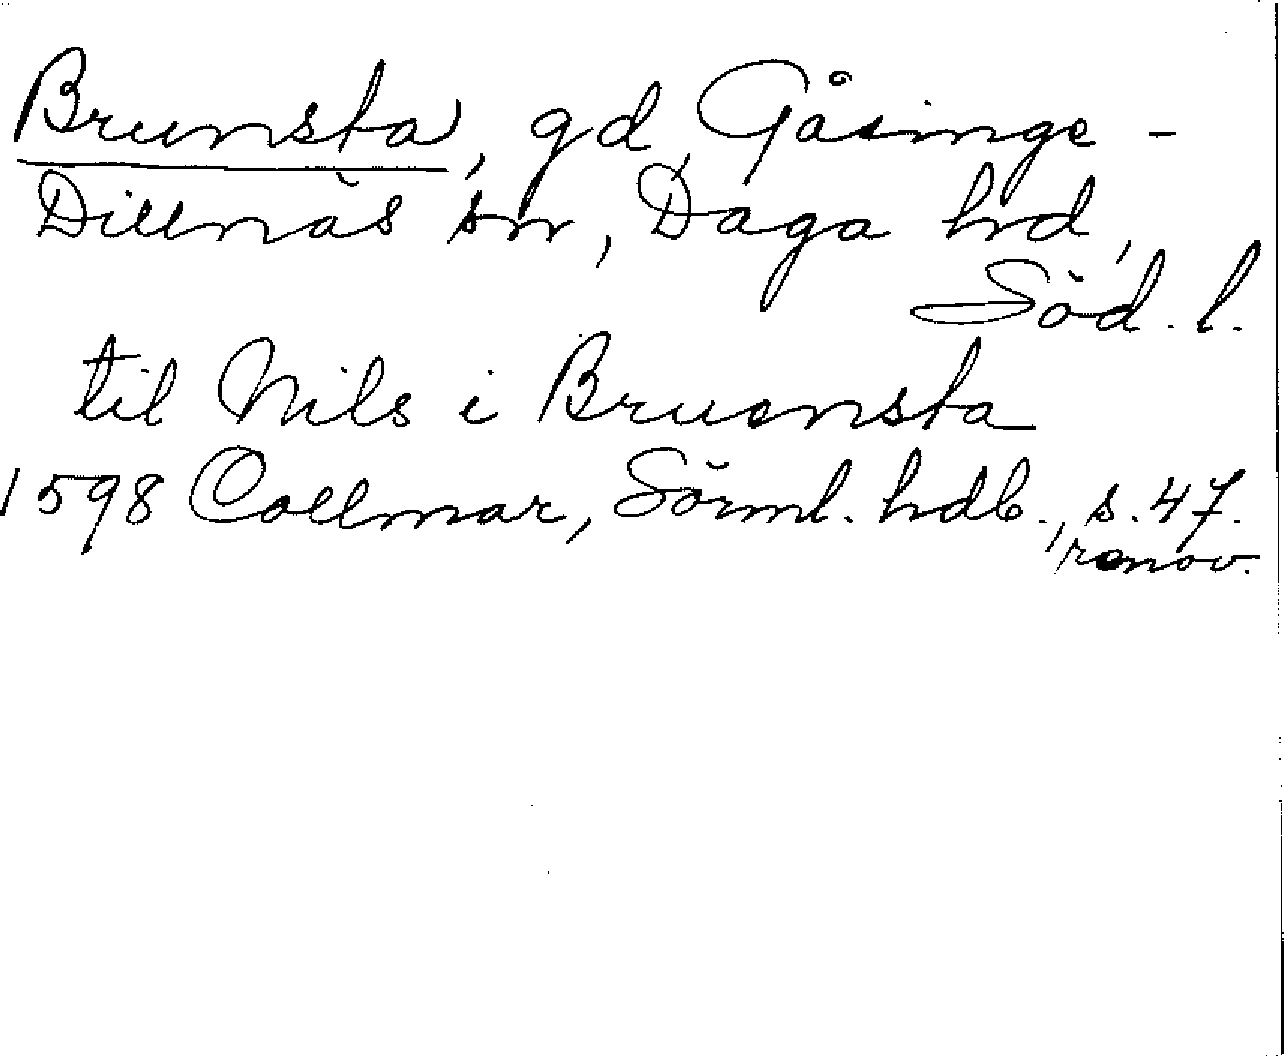 Brunsta, gd, Gåsinge -
Dillnäs sn, Daga hd,
Söd. l.
til Nils i Bruensta
1598 Collmar, Sörml. hdb., s. 47.
, renov.